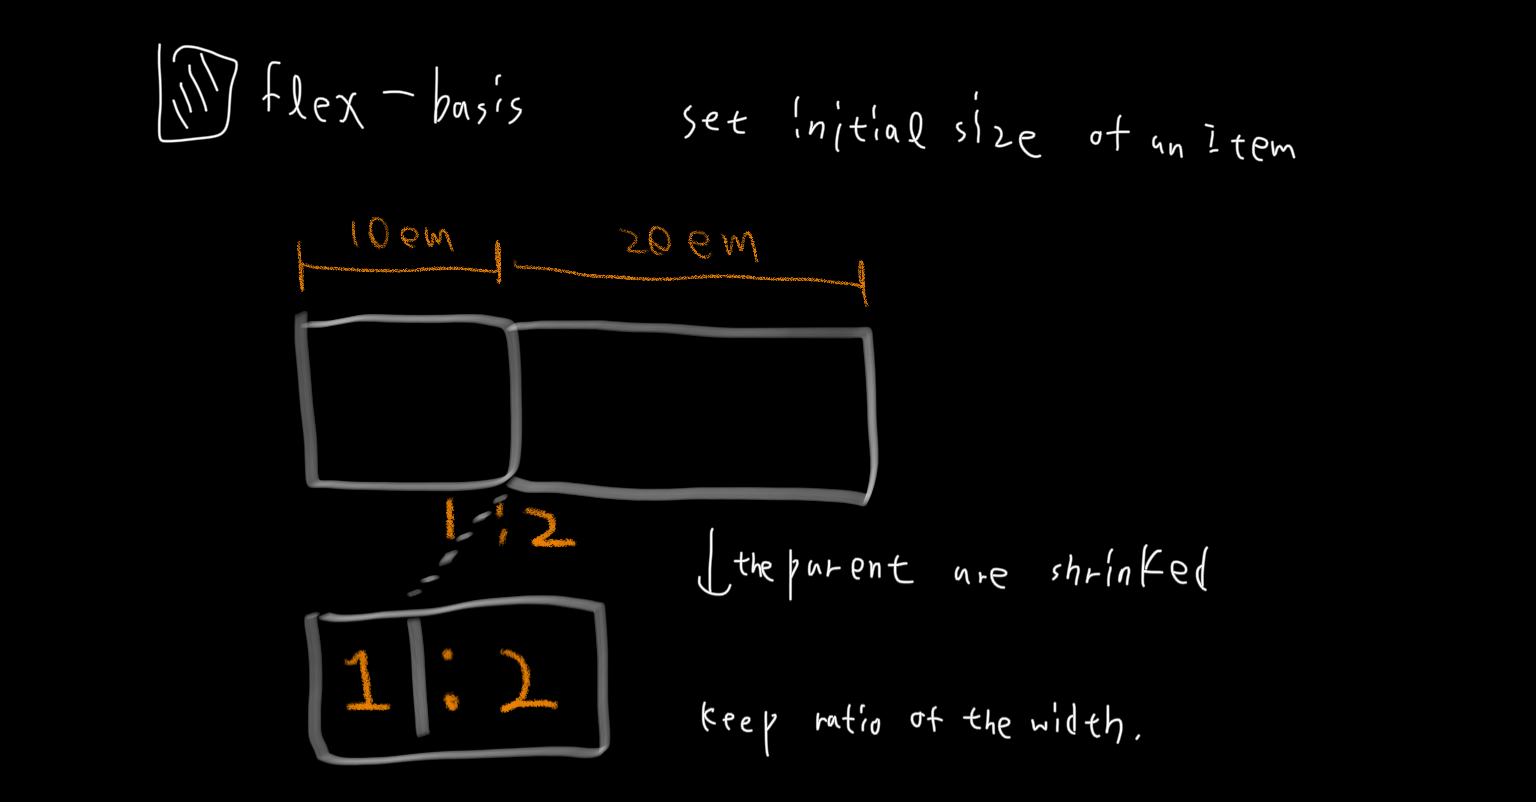 flex-basis
set initial size of an Item
10em
20em
1:2
the parent are shrinked
1:2
keep ratio of the width.